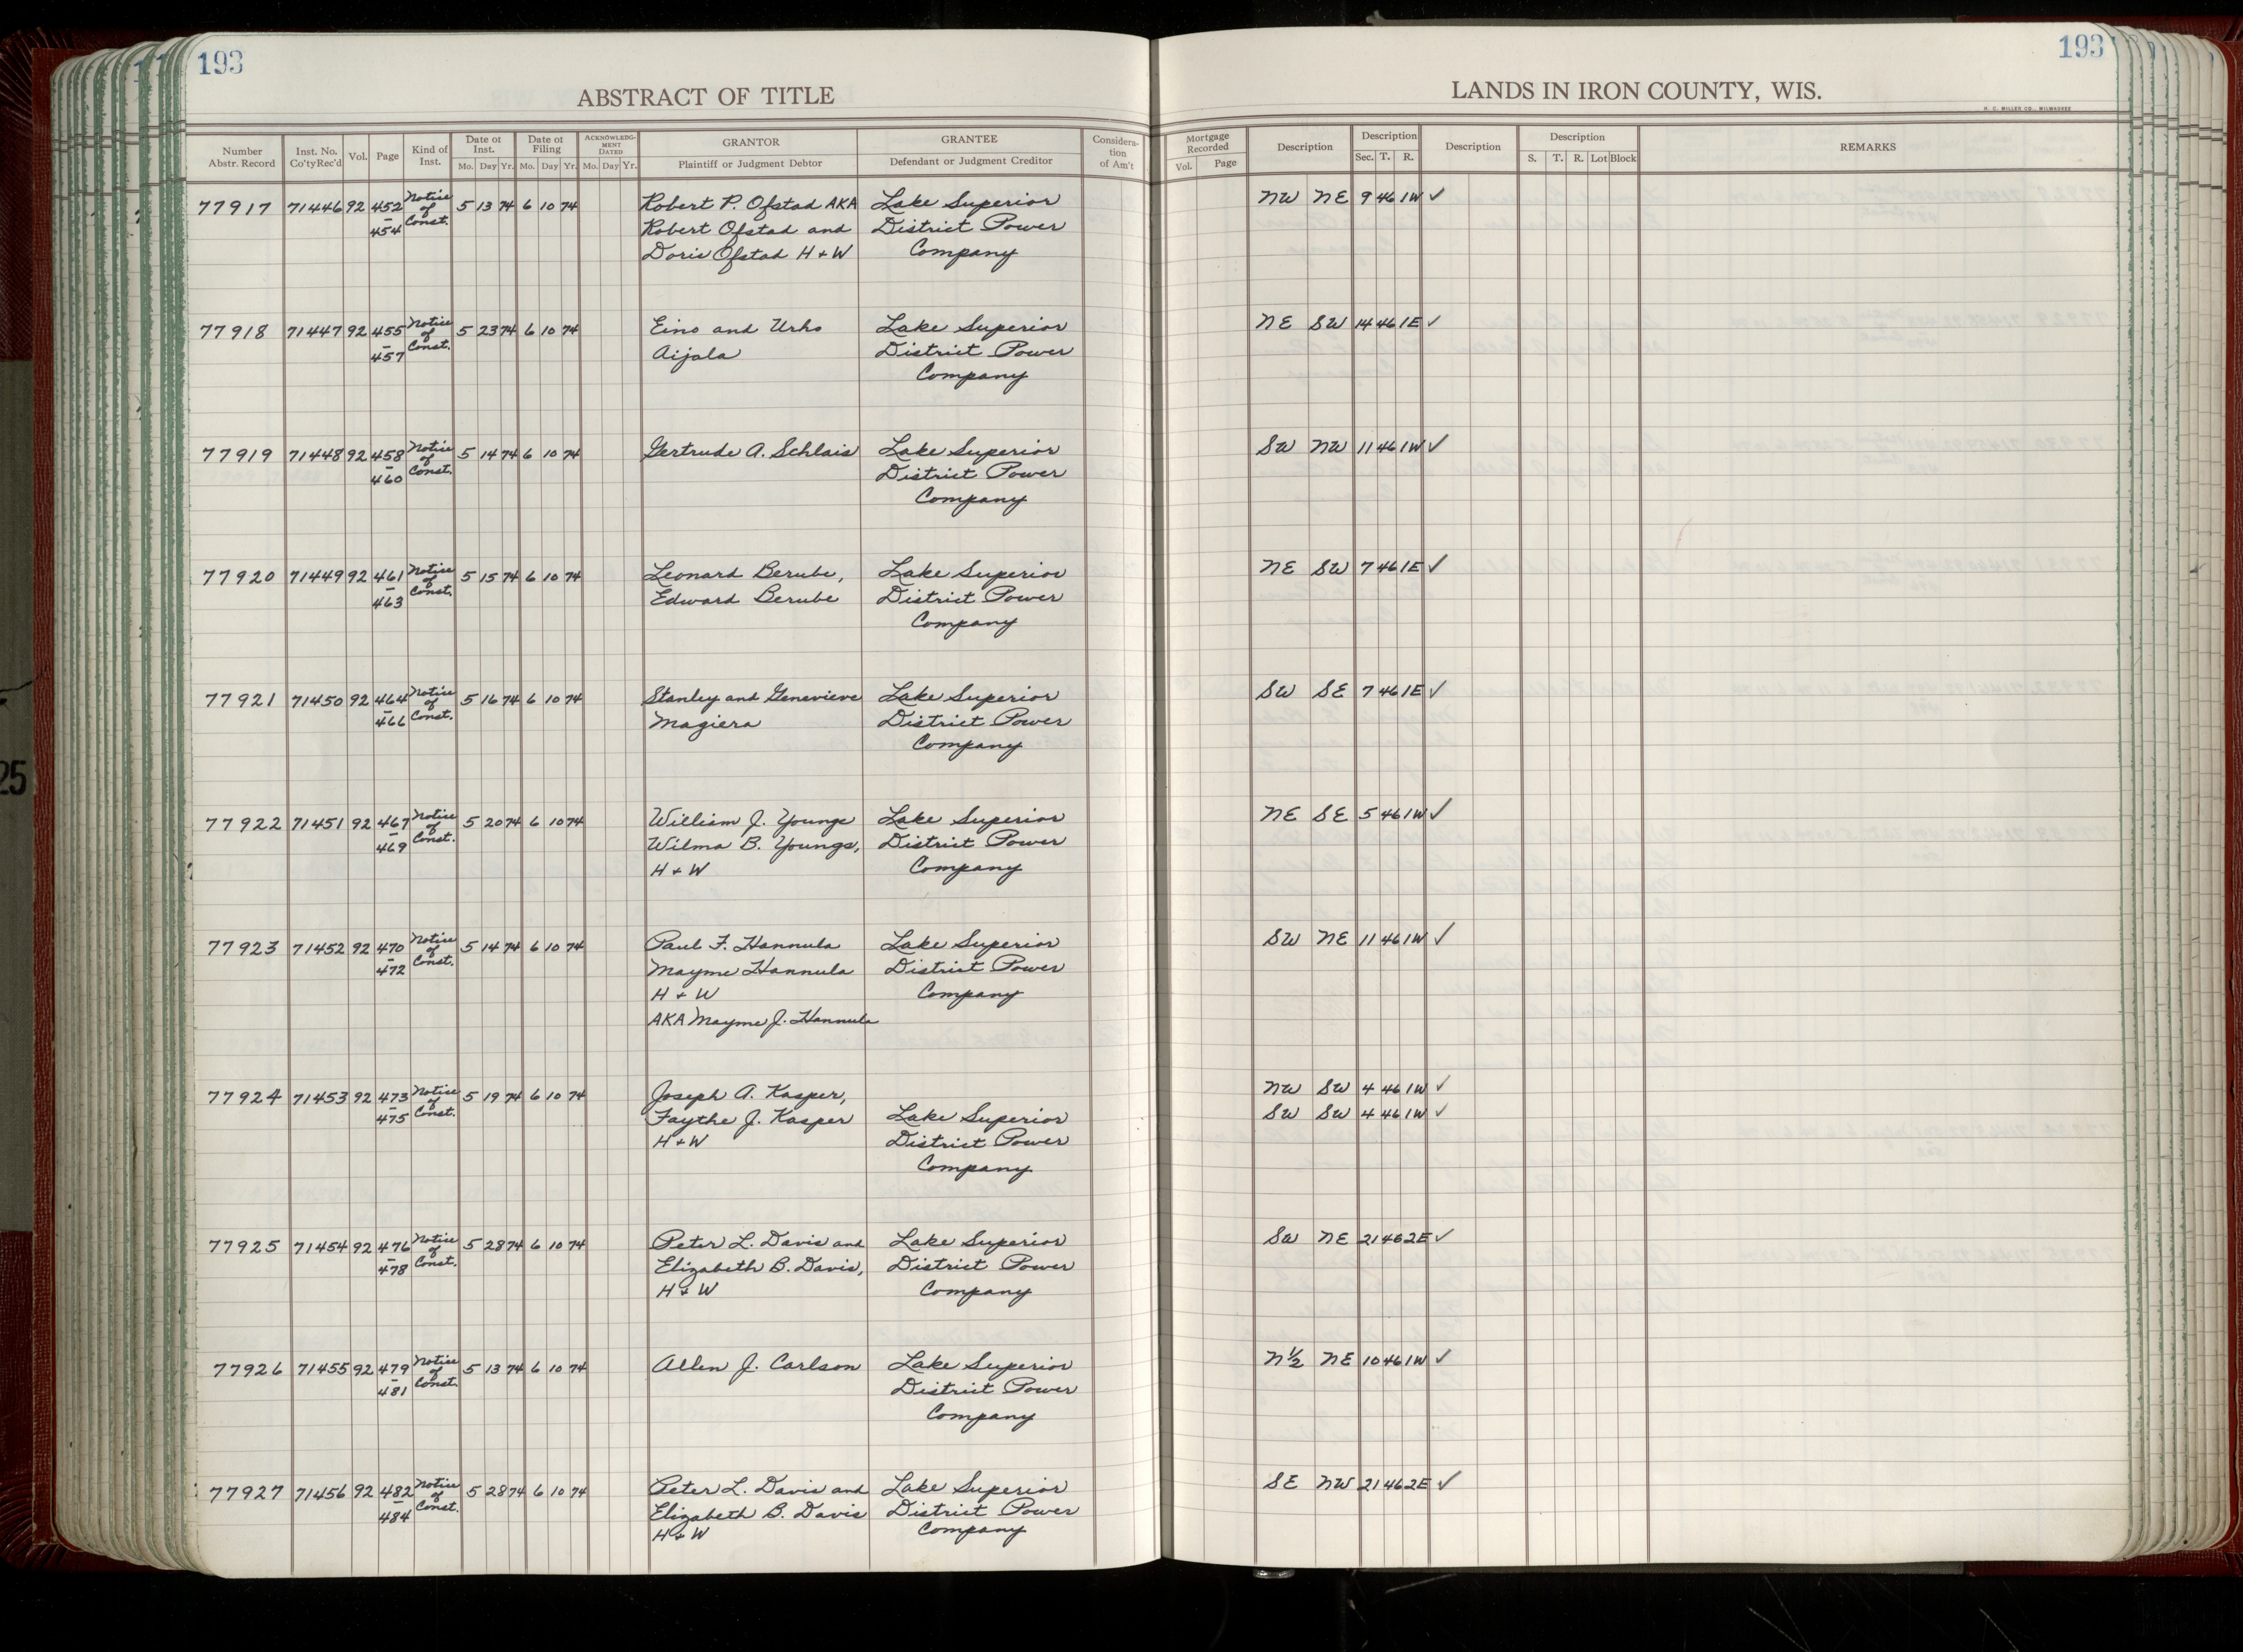 193
193
ABSTRACT OF TITLE
LANDS IN IRON COUNTY, WIS.
H. C. MILLER CO., MILWAUKEE
Number Abstr. Record | Inst. No. Co'ty Rec'd | Vol. | Page | Kind of Inst. | Date of Inst. Mo. Day Yr. | Date of Filing Mo. Day Yr. | ACKNOWLEDGMENT DATED Mo. Day Yr. | GRANTOR Plaintiff or Judgment Debtor | GRANTEE Defendant or Judgment Creditor | Consideration of Am't | Mortgage Recorded Vol. Page | Description | Description Sec. T. R. | Description | Description S. T. R. Lot Block | REMARKS
77917 71446 92 452 - 454 Notice of Const. 5 13 74 6 10 74 Robert P. Ofstad AKA Lake Superior NW NE 9 46 1W ✓
Robert Ofstad and District Power
Doris Ofstad H + W Company
77918 71447 92 455 - 457 Notice of Const. 5 23 74 6 10 74 Eino and Urho Lake Superior NE SW 14 46 1E ✓
Aijala District Power
Company
77919 71448 92 458 - 460 Notice of Const. 5 14 74 6 10 74 Gertrude A. Schlais Lake Superior SW NW 11 46 1W ✓
District Power
Company
77920 71449 92 461 - 463 Notice of Const. 5 15 74 6 10 74 Leonard Berube, Lake Superior NE SW 7 46 1E ✓
Edward Berube District Power
Company
77921 71450 92 464 - 466 Notice of Const. 5 16 74 6 10 74 Stanley and Genevieve Lake Superior SW SE 7 46 1E ✓
Magiera District Power
Company
77922 71451 92 467 - 469 Notice of Const. 5 20 74 6 10 74 William J. Youngs Lake Superior NE SE 5 46 1W ✓
Wilma B. Youngs, District Power
H + W Company
77923 71452 92 470 - 472 Notice of Const. 5 14 74 6 10 74 Paul F. Hannula Lake Superior SW NE 11 46 1W ✓
Mayme Hannula District Power
H + W Company
AKA Mayme J. Hannula
77924 71453 92 473 - 475 Notice of Const. 5 19 74 6 10 74 Joseph A. Kasper, NW SW 4 46 1W ✓
Faythe J. Kasper Lake Superior SW SW 4 46 1W ✓
H + W District Power
Company
77925 71454 92 476 - 478 Notice of Const. 5 28 74 6 10 74 Peter L. Davis and Lake Superior SW NE 21 46 2E ✓
Elizabeth B. Davis, District Power
H + W Company
77926 71455 92 479 - 481 Notice of Const. 5 13 74 6 10 74 Allen J. Carlson Lake Superior N½ NE 10 46 1W ✓
District Power
Company
77927 71456 92 482 - 484 Notice of Const. 5 28 74 6 10 74 Peter L. Davis and Lake Superior SE NW 21 46 2E ✓
Elizabeth B. Davis District Power
H + W Company
25